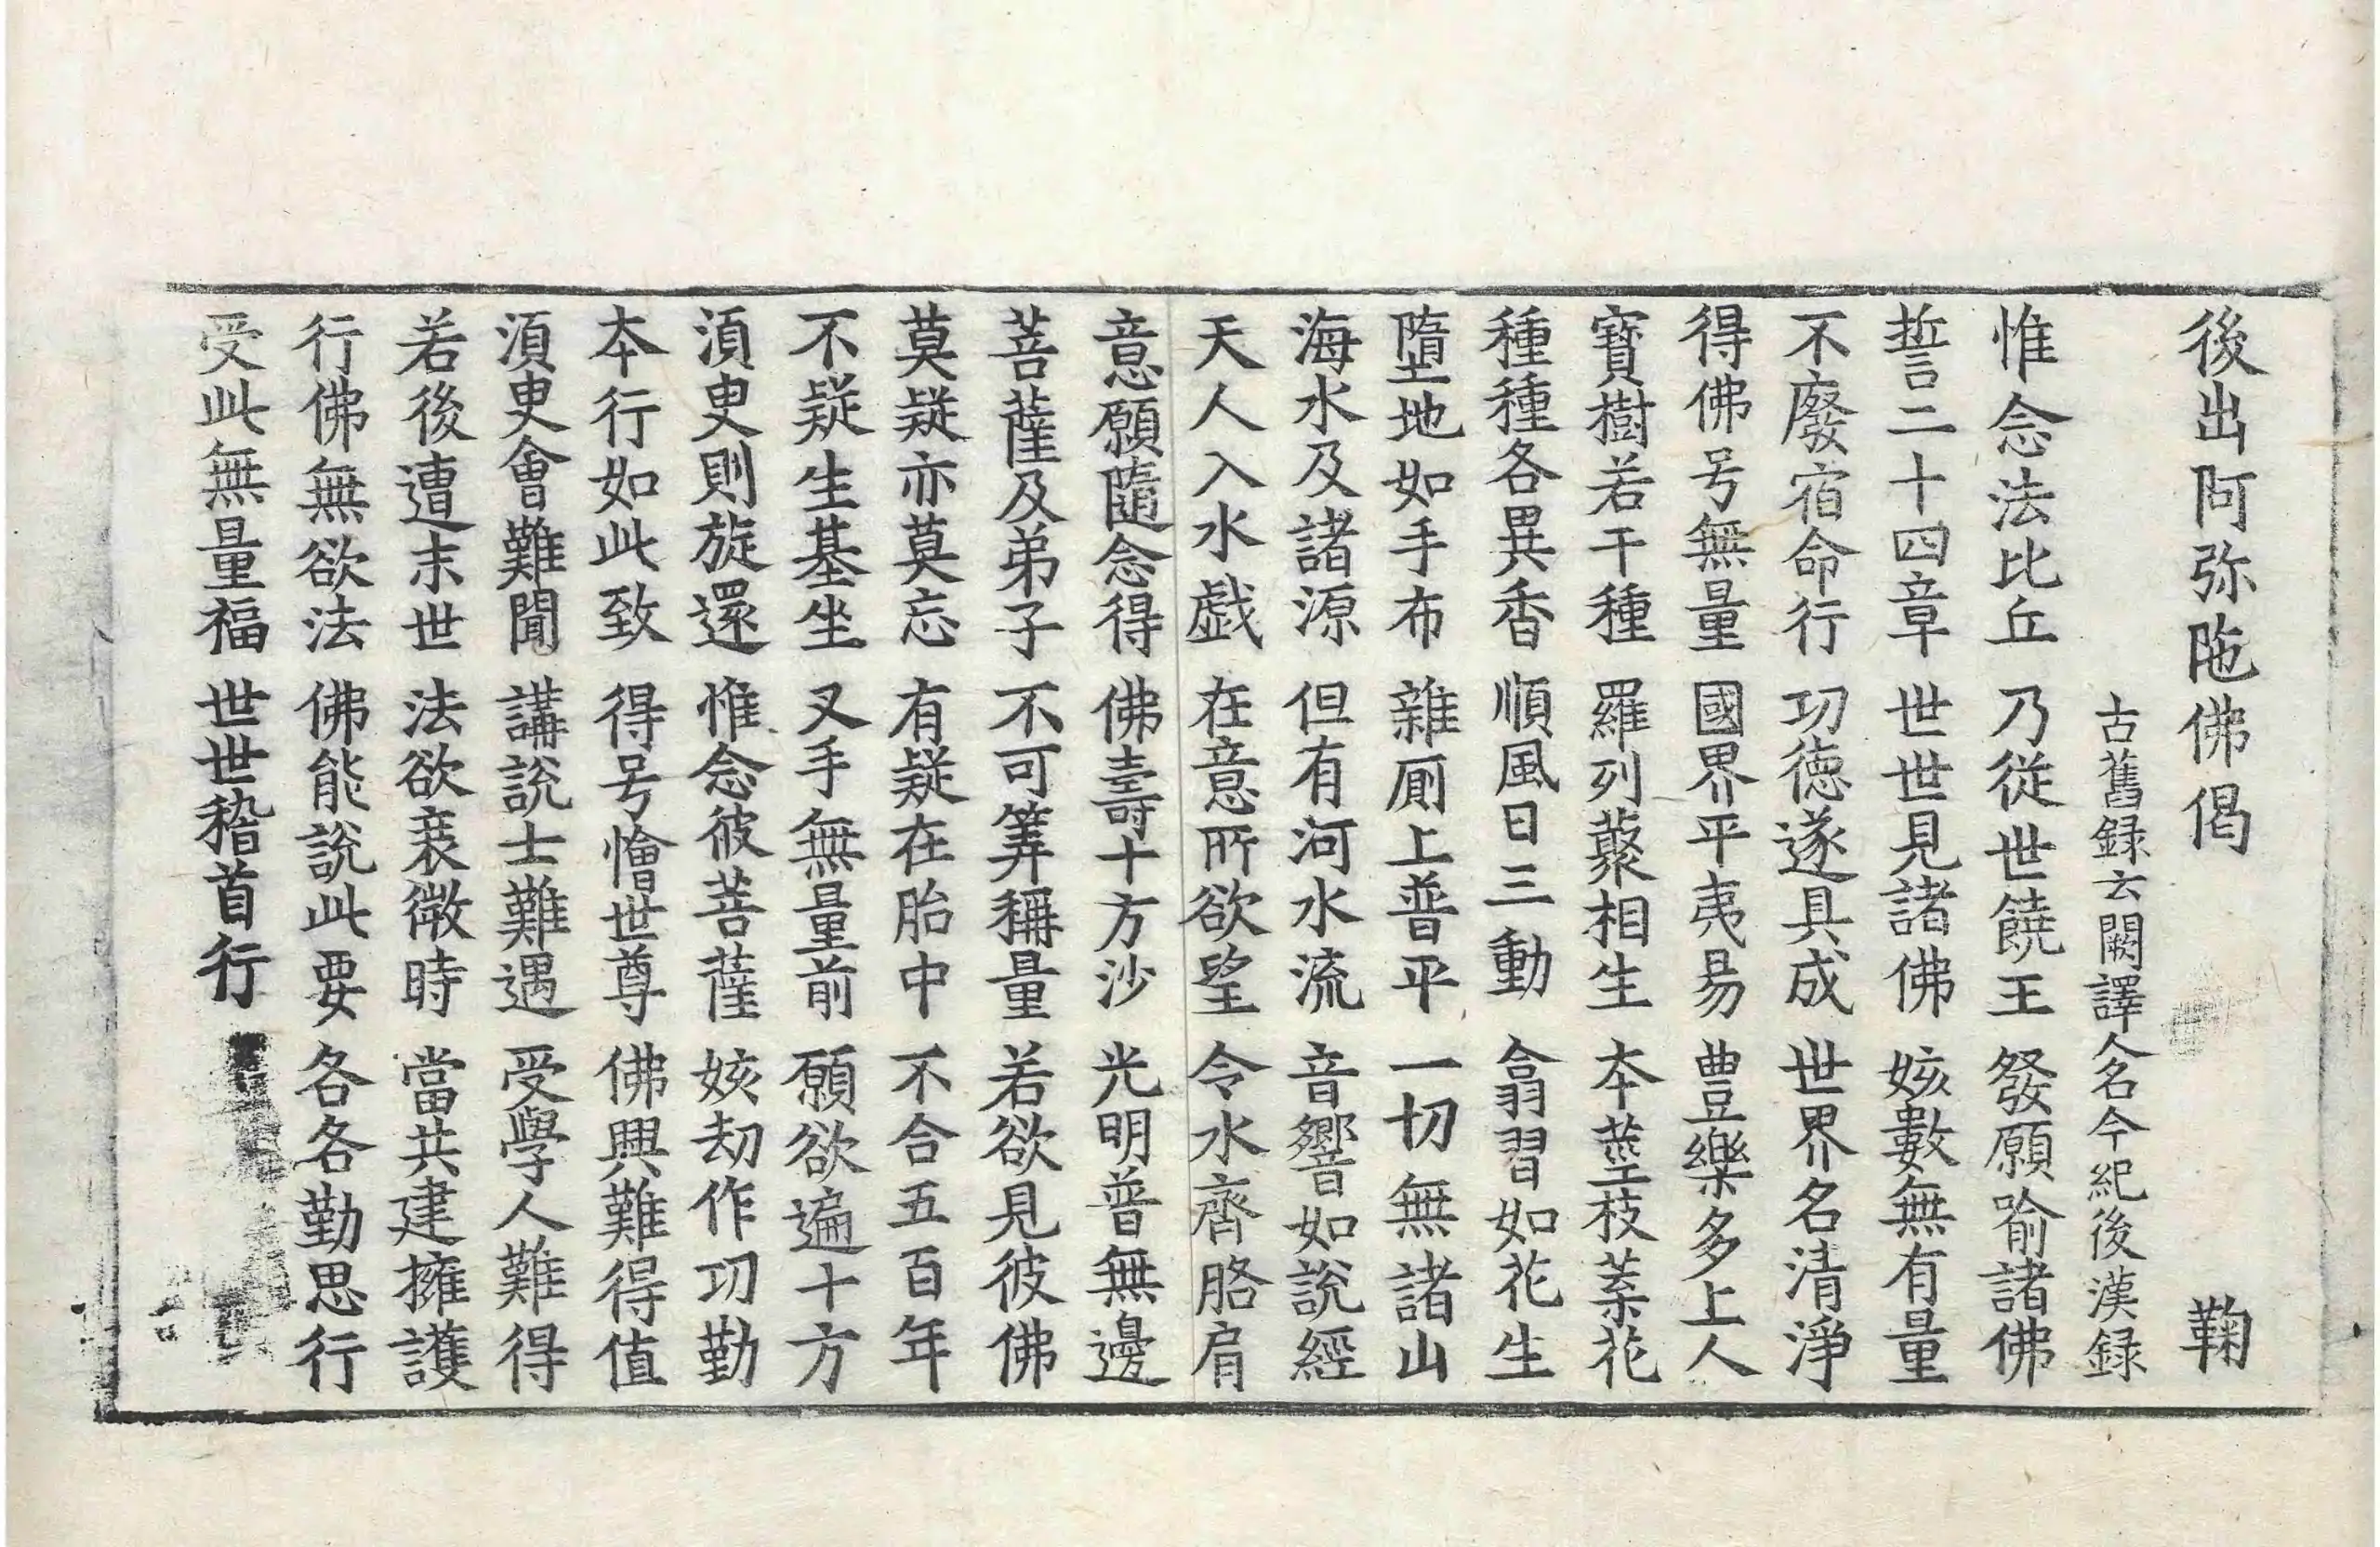 後出阿弥陁佛偈 鞠
古舊録云闕譯人名今紀後漢録
惟念法比丘 乃從世饒王 發願喻諸佛
誓二十四章 世世見諸佛 姟數無有量
不廢宿命行 功徳遂具成 世界名清淨
得佛号無量 國界平夷易 豊樂多上人
寶樹若干種 羅列藂相生 本莖枝葉花
種種各異香 順風日三動 翕習如花生
墮地如手布 雜厠上普平 一切無諸山
海水及諸源 但有河水流 音響如說經
天人入水戯 在意所欲望 令水齊胳肩
意願隨念得 佛壽十方沙 光明普無邊
菩薩及弟子 不可筭稱量 若欲見彼佛
莫疑亦莫忘 有疑在胎中 不合五百年
不疑生基坐 叉手無量前 願欲遍十方
湏臾則旋還 惟念彼菩薩 姟劫作功勤
本行如此致 得号懀世尊 佛興難得值
湏臾會難聞 講說士難遇 受學人難得
若後遭末世 法欲衰微時 當共建擁護
行佛無欲法 佛能說此要 各各勤思行
受此無量福 世世稽首行